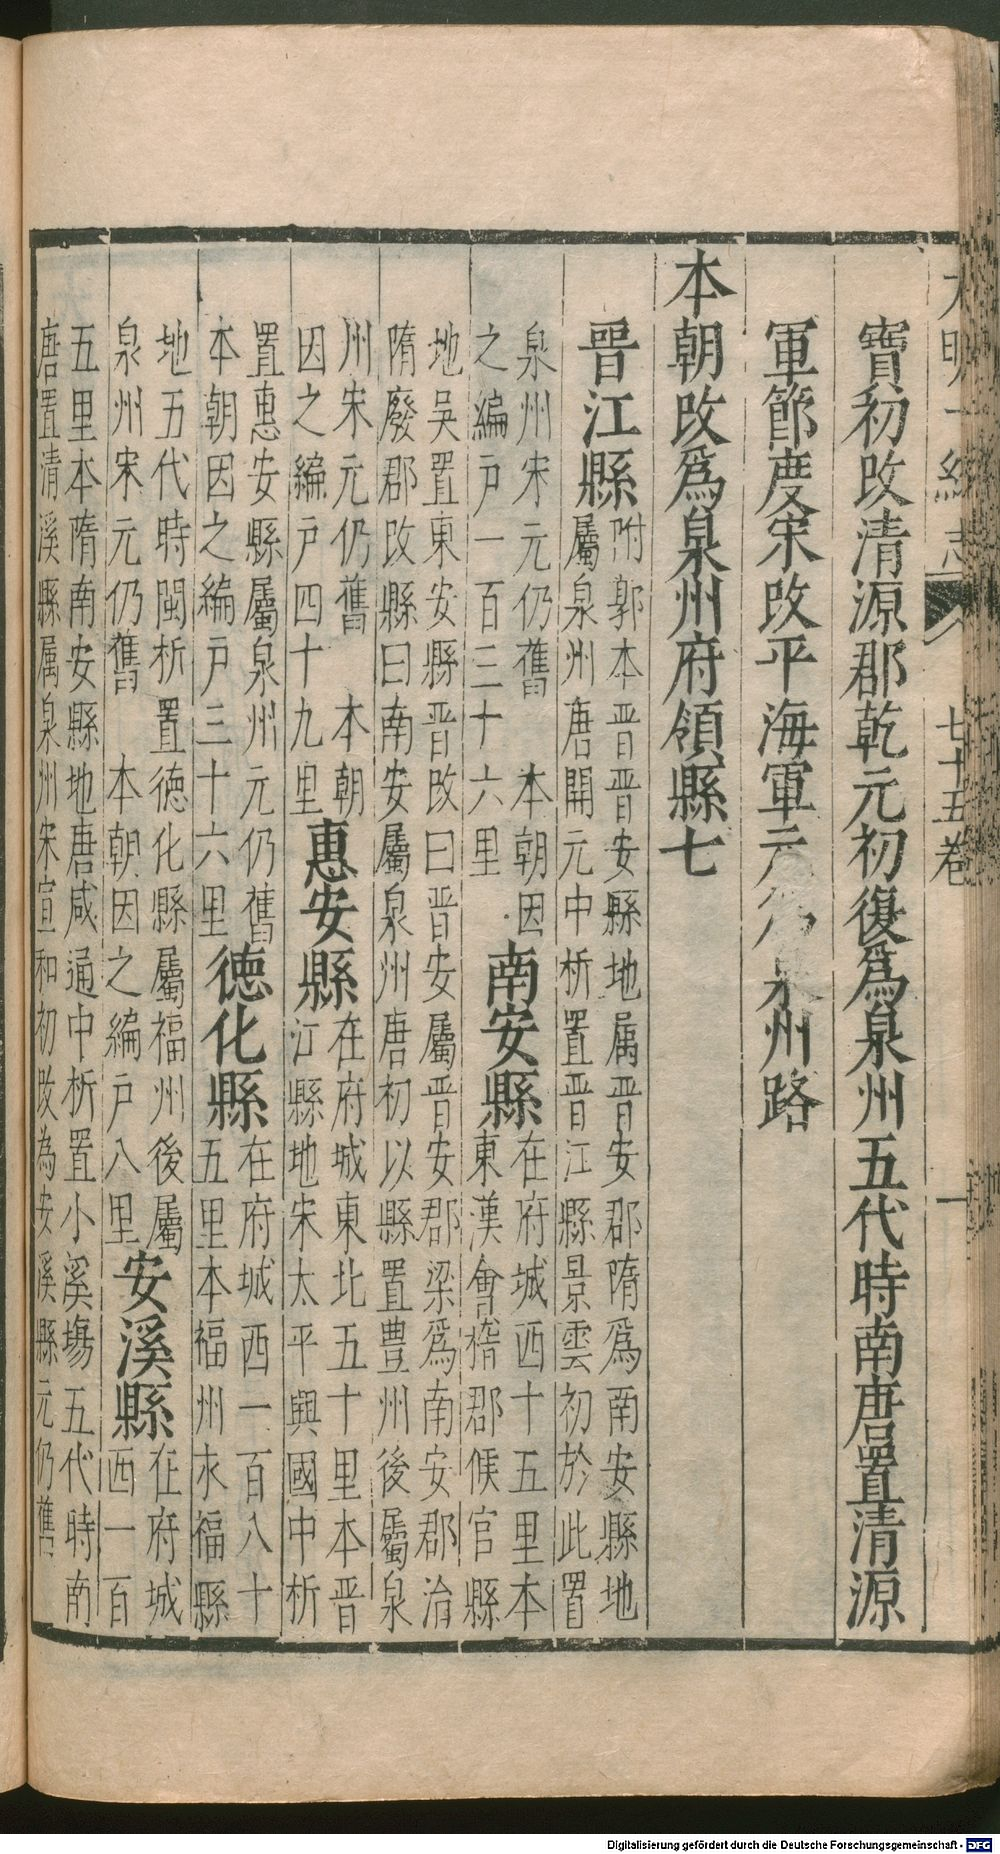 大明一統志 七十五卷 一
寶初改清源郡乾元初復爲泉州五代時南唐置清源
軍節度宋改平海軍元爲泉州路
本朝改爲泉州府領縣七
晋江縣
附郭本晋晋安縣地属晋安郡隋爲南安縣地
屬泉州唐開元中析置晋江縣景雲初於此置
泉州宋元仍舊 本朝因
之編戸一百三十六里
南安縣
在府城西十五里本
東漢會稽郡候官縣
地吳置東安縣晋改曰晋安屬晋安郡梁爲南安郡治
隋廢郡改縣曰南安屬泉州唐初以縣置豊州後屬泉
州宋元仍舊 本朝
因之編戸四十九里
惠安縣
在府城東北五十里本晋
江縣地宋太平興國中析
置惠安縣屬泉州元仍舊
本朝因之編戸三十六里
德化縣
在府城西一百八十
五里本福州永福縣
地五代時閩析置德化縣屬福州後屬
泉州宋元仍舊 本朝因之編戸八里
安溪縣
在府城
西一百
五里本隋南安縣地唐咸通中析置小溪塲五代時南
唐置清溪縣属泉州宋宣和初改為安溪縣元仍舊
Digitalisierung gefördert durch die Deutsche Forschungsgemeinschaft - DFG